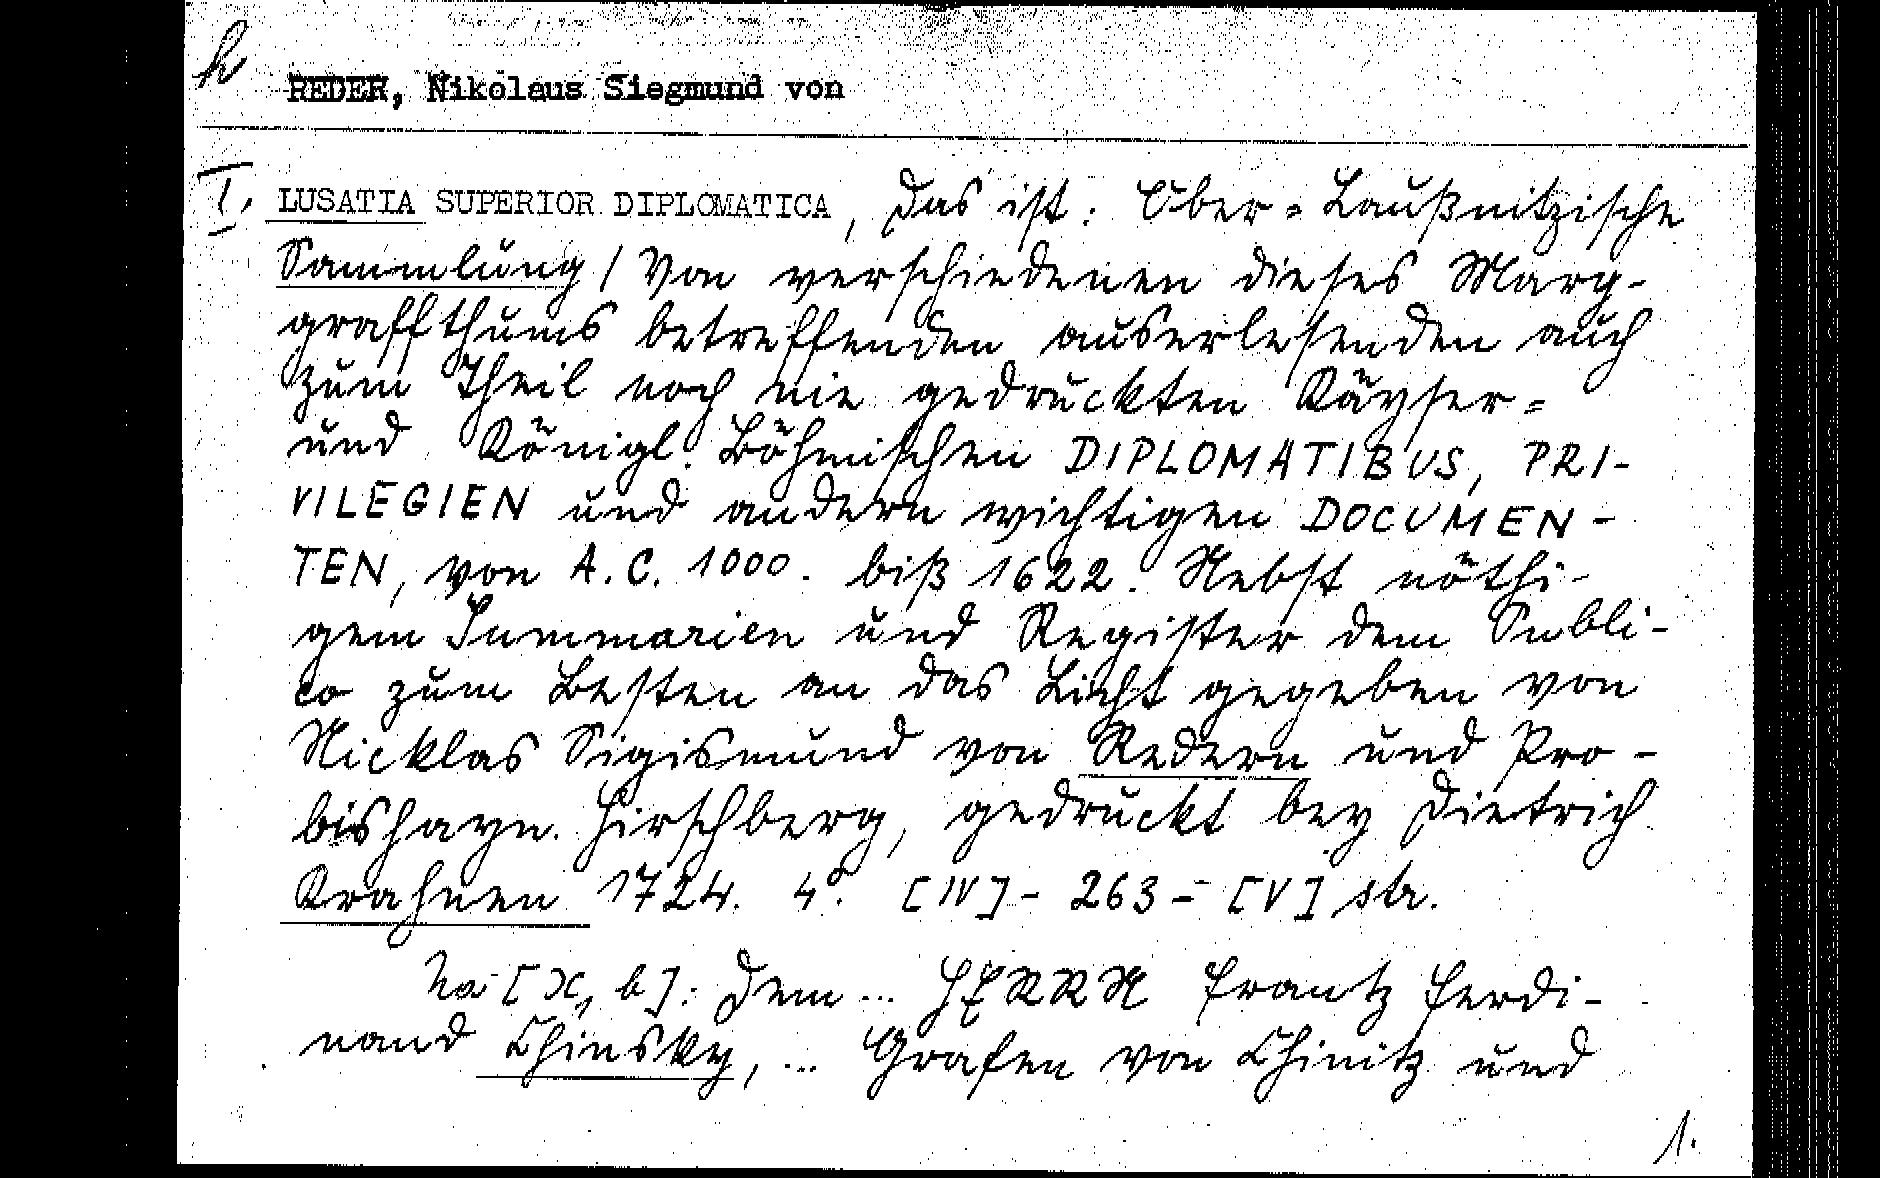 h
REDER, Nikolaus Siegmund von
I. LUSATIA SUPERIOR DIPLOMATICA, Das ist: Ober=Laußnitzische
Sammlung / Von verschiedenen dieses Marg-
graffthums betreffenden auserlesenden auch
zum Theil noch nie gedruckten Käyser=
und Königl. Böhmischen DIPLOMATIBUS, PRI-
VILEGIEN und andern wichtigen DOCUMEN-
TEN, von A.C. 1000. biß 1622. Nebst nöthi-
gem Summarien und Register dem Publi-
co zum Besten an das Licht gegeben von
Nicklas Sigismund von Redern und Pro-
bishayn. Hirschberg, gedruckt bey Dietrich
Krahnen 1724. 4°. [IV]- 263 - [V] str.
Na [x, b]: Dem ... HERRN Frantz Ferdi-
nand Chinsky, ... Grafen von Chinitz und
1.